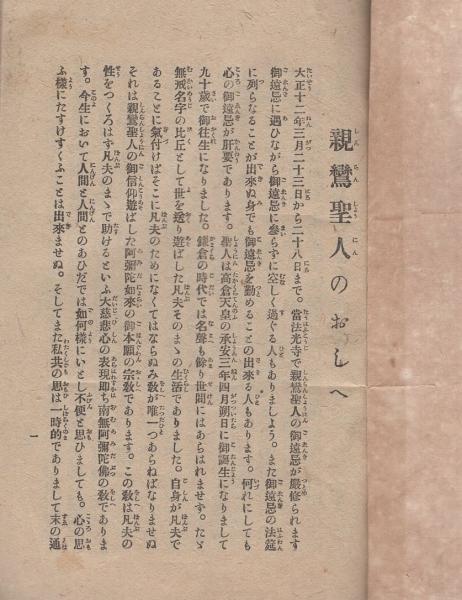 親鸞聖人のおしへ
大正十二年三月二十三日から二十八日まで。當法光寺で親鸞聖人の御遠忌が嚴修られます
御遠忌に遇ひながら御遠忌に參らずに空しく過ぐる人もありましよう。また御遠忌の法筵
に列らなることが出來ぬ身でも御遠忌を勤めることの出來る人もあります。何れにしても
心の御遠忌が肝要であります。聖人は高倉天皇の承安三年四月朔日に御誕生になりまして
九十歳で御往生になりました。鎌倉の時代では名聲も餘り世間にはあらはれませず。たゞ
無戒名字の比丘として世を送り遊ばした凡夫そのまゝの生活でありました。自身が凡夫で
あることに氣付けばそこに凡夫のためになくてはならぬみ敎が唯一つあらねばなりませぬ
それは親鸞聖人の御信仰遊ばした阿彌陀如來の御本願の宗敎であります。この敎は凡夫の
性をつくろはず凡夫のまゝで助けるといふ大慈悲心の表現即ち南無阿彌陀佛の敎でありま
す。今生において人間と人間とのあひだでは如何樣にいとし不便と思ひましても。心の思
ふ樣にたすけすくふことは出來ませぬ。そしてまた私共の思は一時的でありまして末の通
一